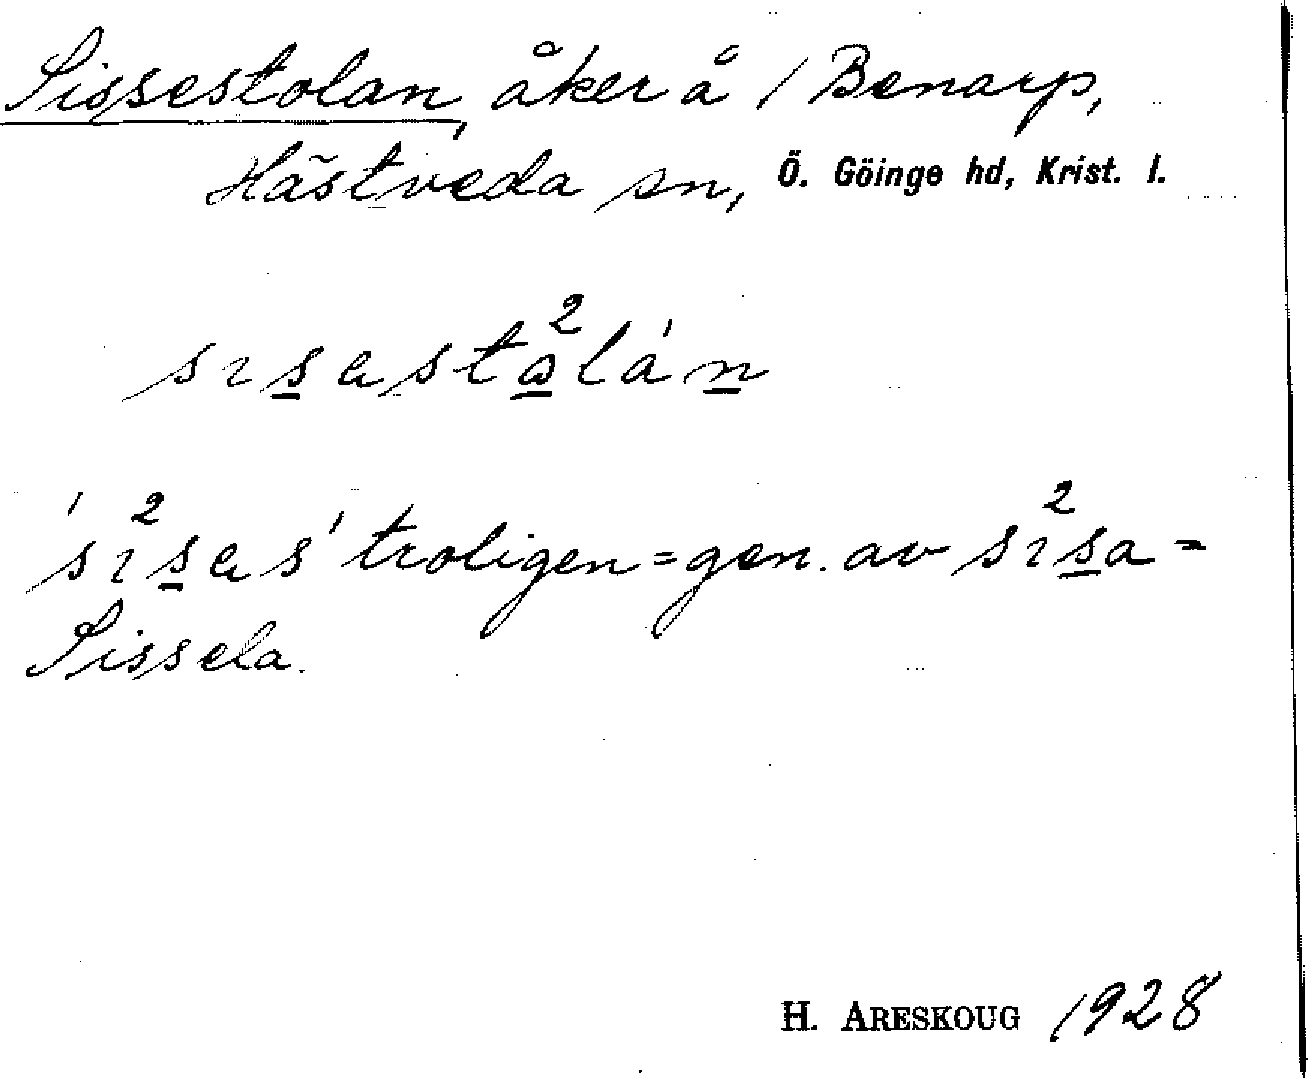 Sissestolan, åker å / Benarp,
Hästveda sn, Ö. Göinge hd, Krist. l.
sısɐstω²lá'n
'sı²sɐs' troligen = gen. av sı²sa =
Sissela.
H. ARESKOUG 1928